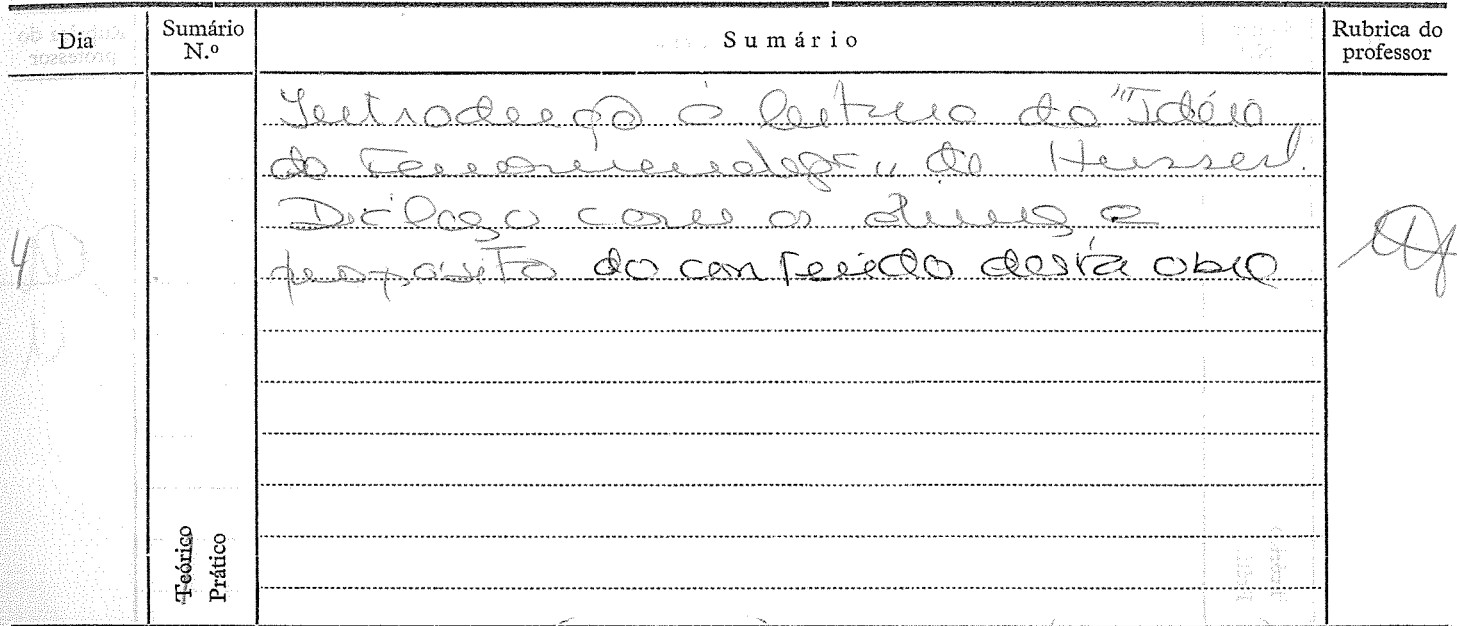 Dia
Sumário N.º
Sumário
Rubrica do professor
4
Introdução à leitura da "Idéia
da Fenomenologia" de Husserl.
Diálogo com os alunos a
propósito do conteúdo desta obra
Teórico
Prático